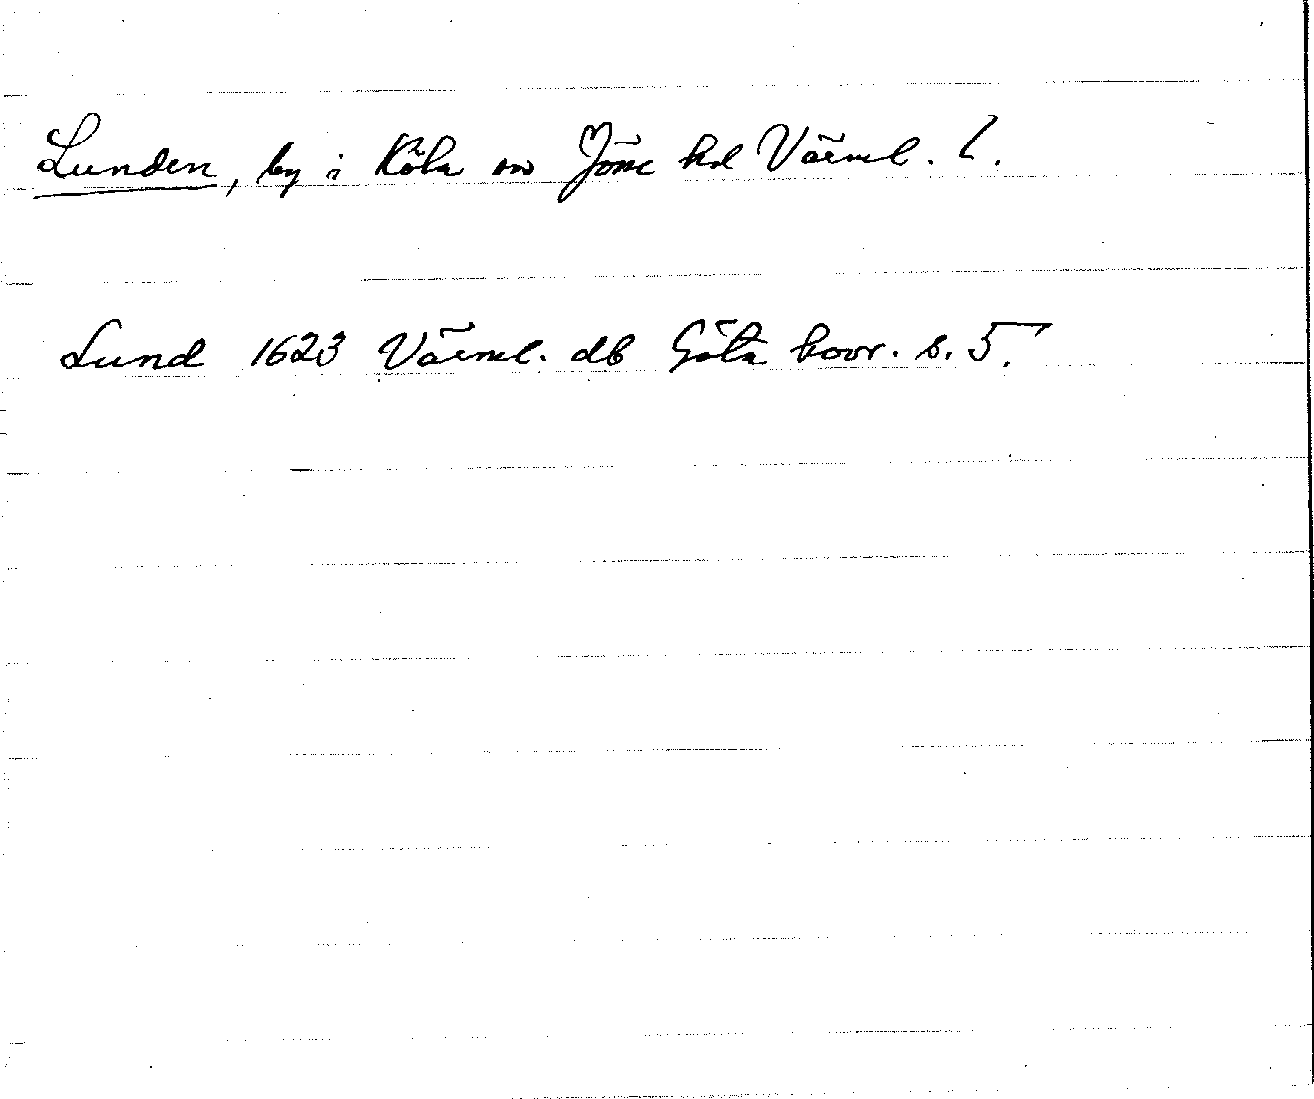 Lunden, by i Köla sn Jösse hd Värml. l.
Lund 1623 Värml. db Göta hovr. s. 5.